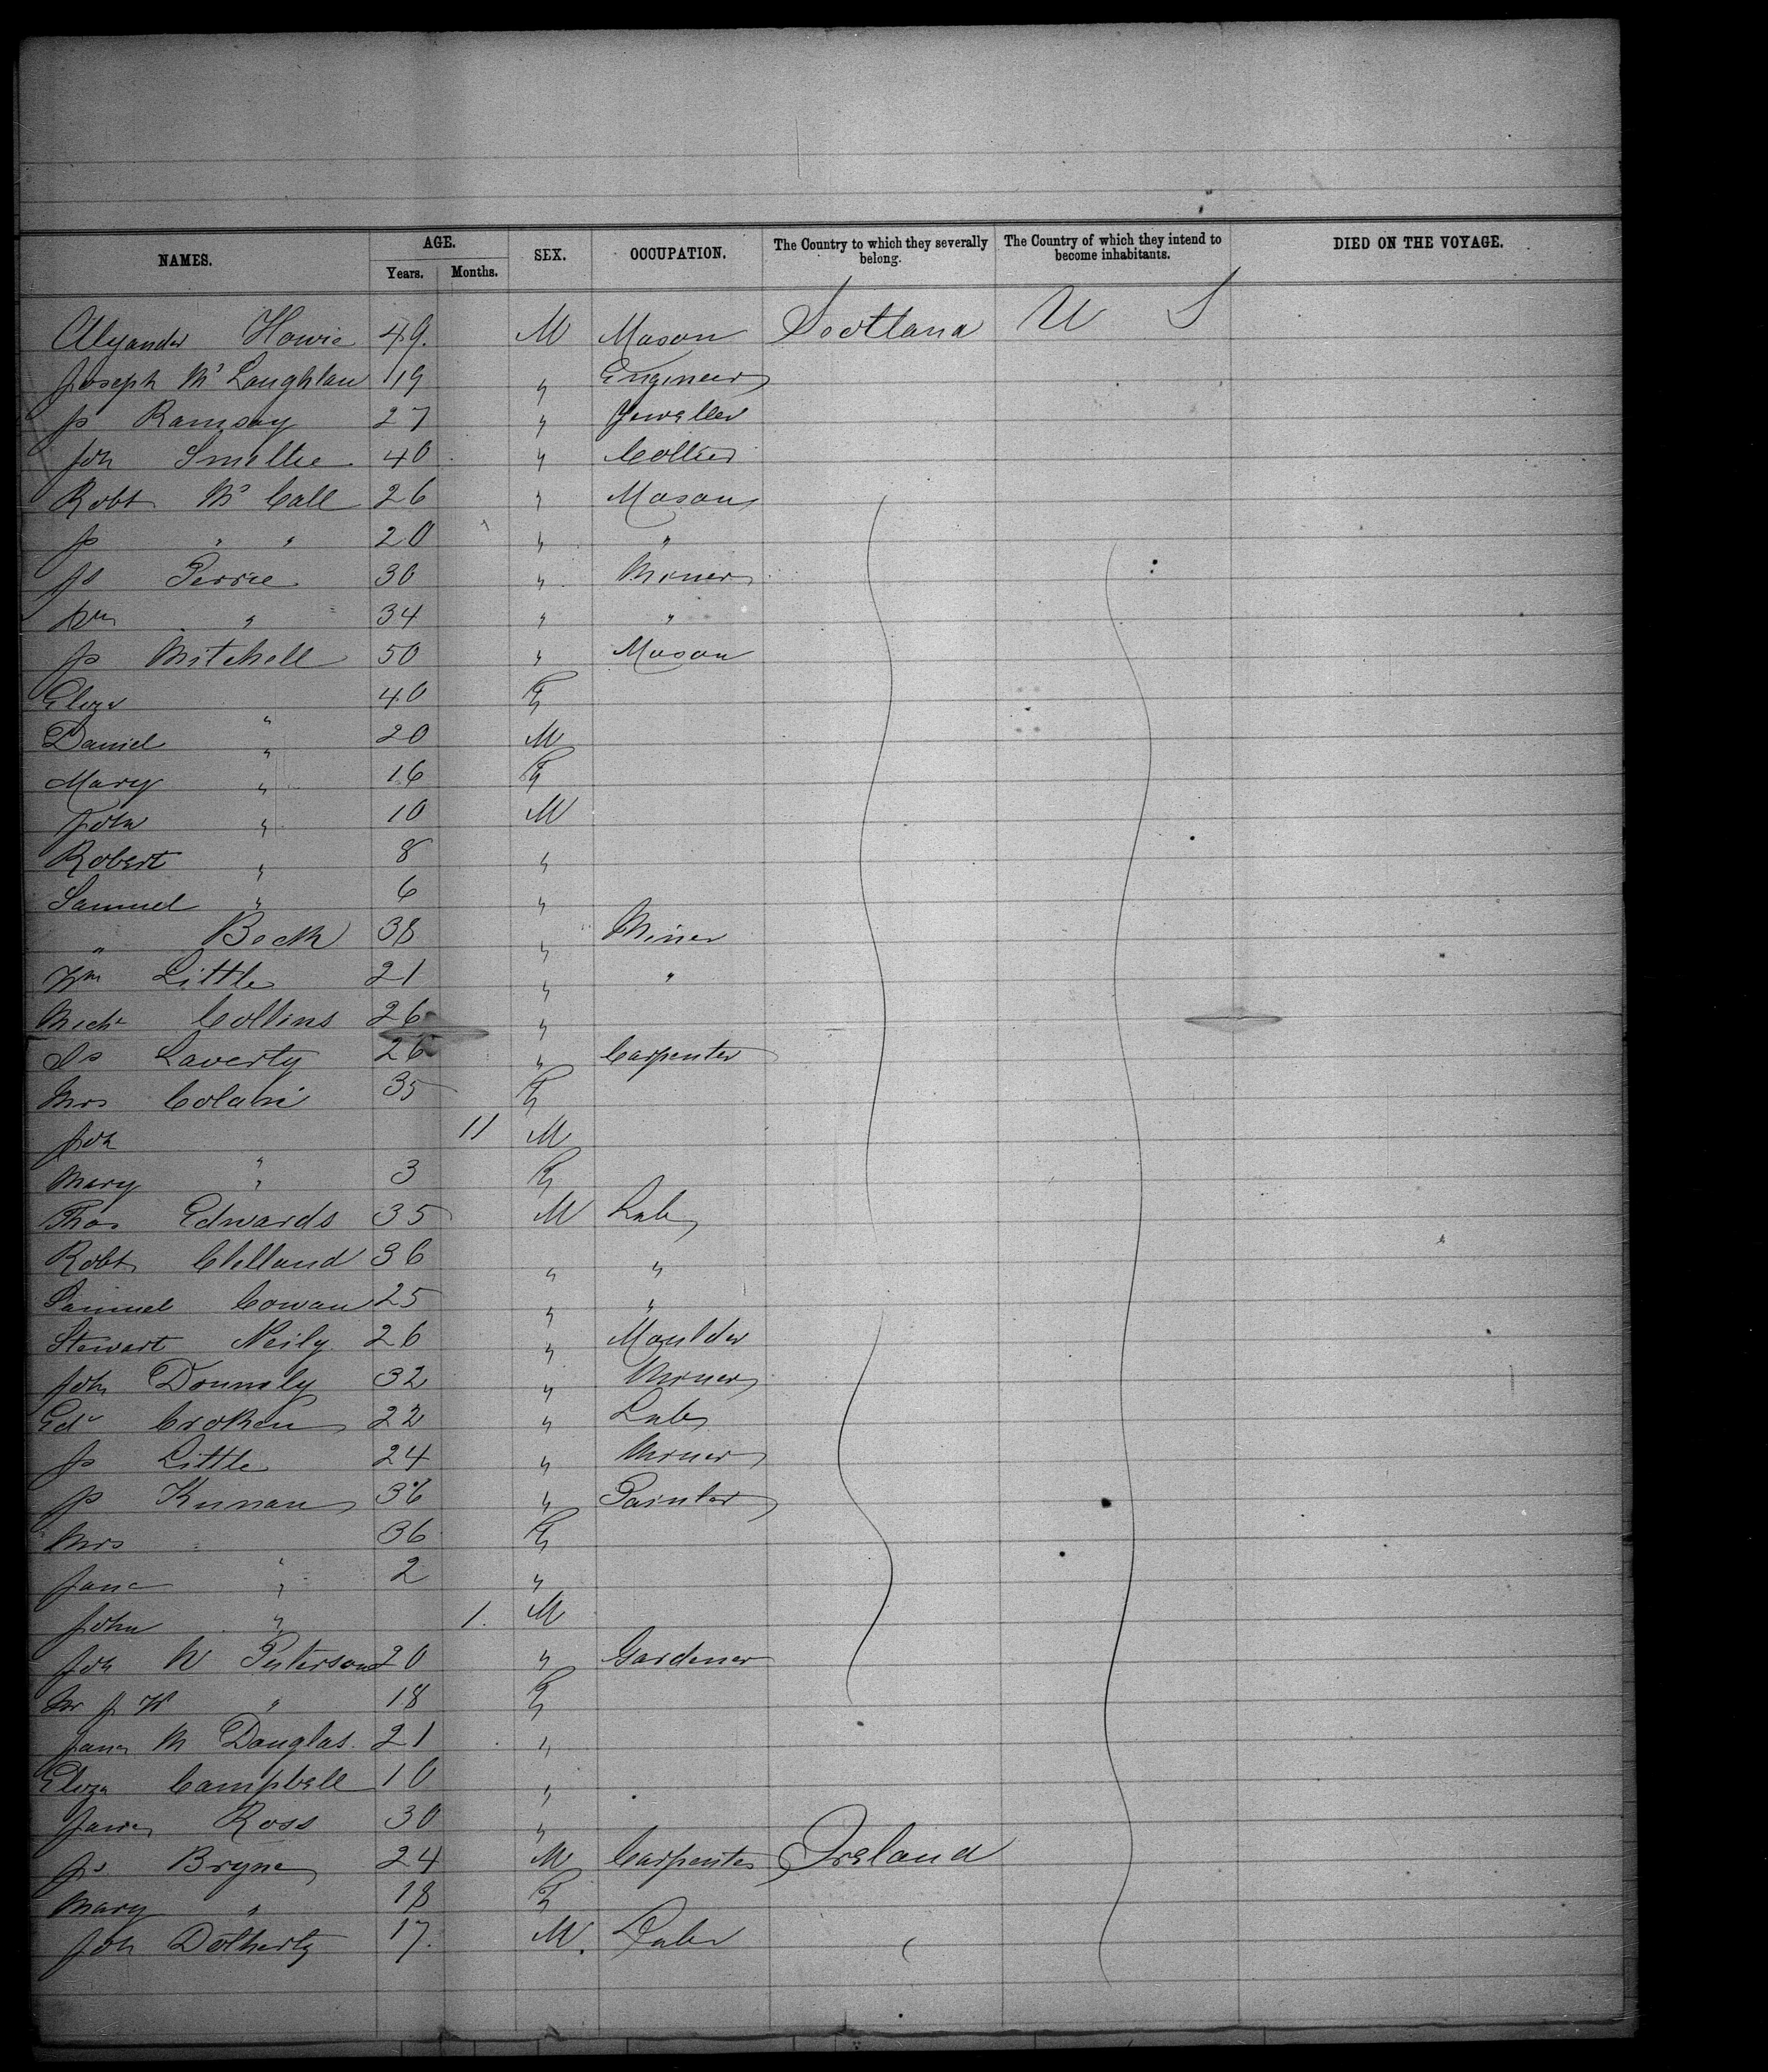 NAMES. AGE. Years. Months. SEX. OCCUPATION. The Country to which they severally belong. The Country of which they intend to become inhabitants. DIED ON THE VOYAGE.
Alyander Howie 49. M Mason Scotland U S
Joseph Mc Laughlan 19 " Engineer
Js Ramsay 27 " Jeweller
Joh Smellie 40 " Collier
Robt Mc Call 26 " Mason
Js " " 20 " "
Js Perrie 30 " Miner
Wm " 34 " "
Js Mitchell 50 " Mason
Eliza " 40 F
Daniel " 20 M
Mary " 16 F
John " 10 M
Robert " 8 "
Samuel " 6 "
" Beck 38 " Miner
Wm Little 21 " "
Michl Collins 26 "
Ds Laverty 26 " Carpenter
Mrs 35 F
Joh " 11 M
Mary " 3 F
Thos Edwards 35 M Lab
Robt Clelland 36 " "
Samuel Cowan 25 " "
Stewart Neily 26 " Moulder
John Donnely 32 " Miner
Edd Croken 22 " Lab
Js Little 24 " Miner
Js Kunan 36 " Painter
Mrs " 36 F
Jane " 2 "
John " 1. M
Joh W Peterson 20 " Gardener
Mr J W " 18 F
Jane M Douglas. 21 "
Eliza Campbell 10 "
Jane Ross 30 "
Js Bryne 24 M Carpenter Ireland
Mary " 18 F
Joh Dotherty 17. M. Labr